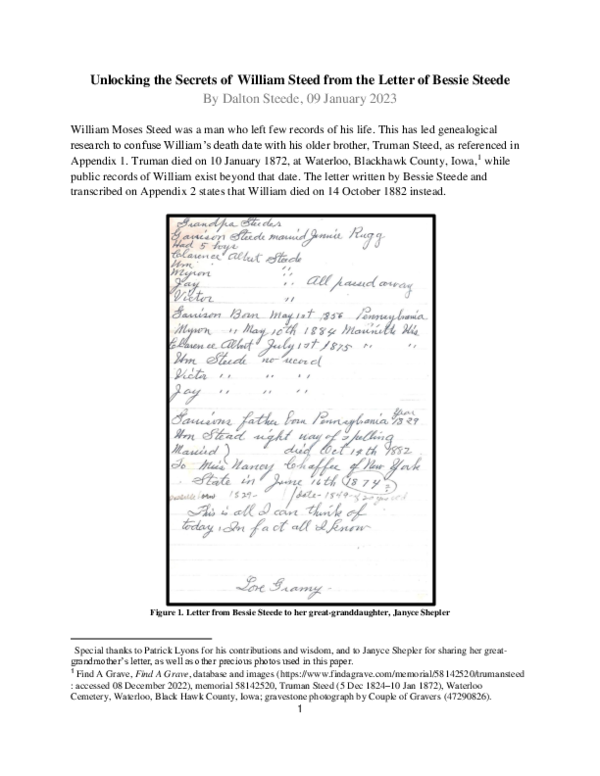 Unlocking the Secrets of William Steed from the Letter of Bessie Steede
By Dalton Steede, 09 January 2023
William Moses Steed was a man who left few records of his life. This has led genealogical
research to confuse William's death date with his older brother, Truman Steed, as referenced in
Appendix 1. Truman died on 10 January 1872, at Waterloo, Blackhawk County, Iowa,1 while
public records of William exist beyond that date. The letter written by Bessie Steede and
transcribed on Appendix 2 states that William died on 14 October 1882 instead.
Grandpa Steedes
Garrison Steede married Jennie Rugg
Had 5 boys
Clarence Albert Steede
Wm "
Myron "
Jay " All passed away
Victor "
Garrison Born May 1st 1856 Pennsylvania
Myron " May 10th 1884 Marinette Wis
Clarence Albert July 1st 1875 " "
Wm Steede no record
Victor " " "
Jay " " "
Garrisons father born Pennsylvania year 1829
Wm Stead right way of spelling
Married) died Oct 14th 1882
To Miss Nancy Chaffee of New York
State in June 16th (1874?)
1829- / date - 1849 -
This is all I can think of
today. In fact all I know
Love Gramy-
Figure 1. Letter from Bessie Steede to her great-granddaughter, Janyce Shepler
Special thanks to Patrick Lyons for his contributions and wisdom, and to Janyce Shepler for sharing her great-
grandmother's letter, as well as other precious photos used in this paper.
1 Find A Grave, Find A Grave, database and images (https://www.findagrave.com/memorial/58142520/trumansteed
: accessed 08 December 2022), memorial 58142520, Truman Steed (5 Dec 1824–10 Jan 1872), Waterloo
Cemetery, Waterloo, Black Hawk County, Iowa; gravestone photograph by Couple of Gravers (47290826).
1